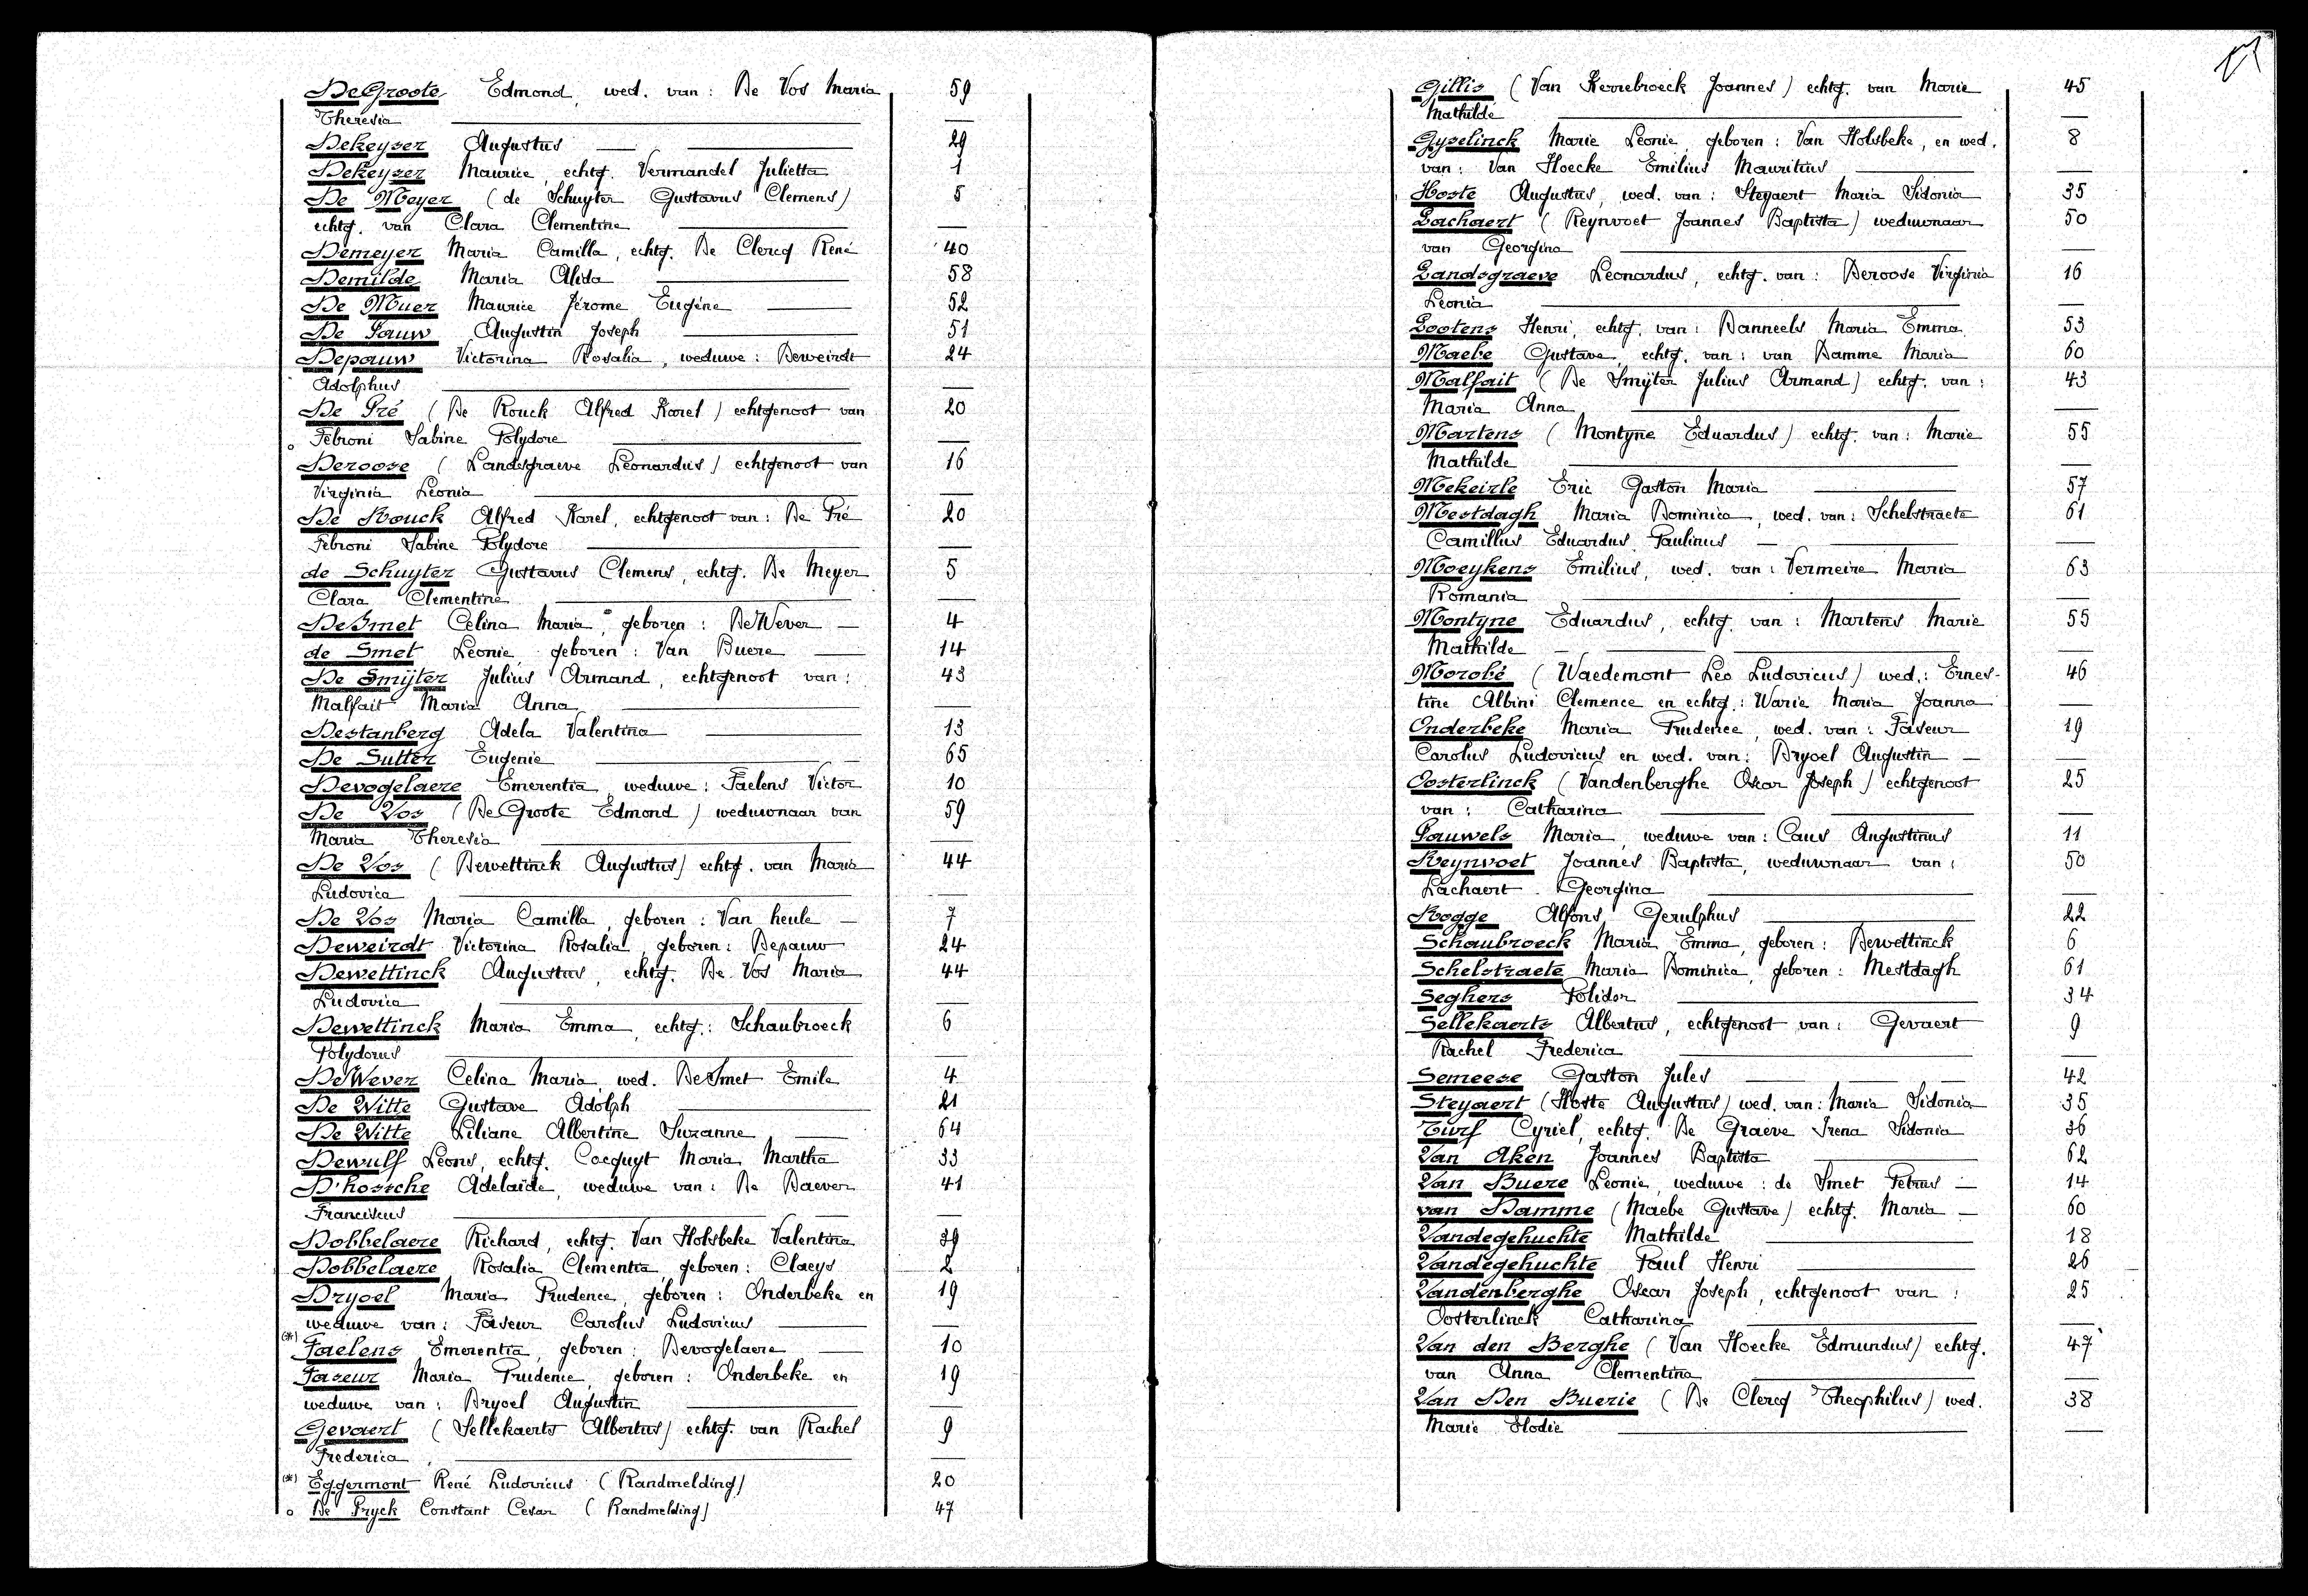 DeGroote Edmond, wed. van: De Vos Maria 59
Theresia
Dekeyser Augustus 29
Dekeyzer Maurice, echtg. Vermandel Julietta 1
De Meyer (de Schuyter Gustavus Clemens) 5
echtg. van Clara Clementine
Demeyer Maria Camilla, echtg. De Clercq René 40
Demilde Maria Alida 58
De Muer Maurice Jérome Eugéne 52
De Pauw Augustin Joseph 51
Depauw Victorina Rosalia, weduwe: Deweirdt 24
Adolphus
De Pré (De Rouck Alfred Karel) echtgenoot van 20
Febroni Sabine Polydore
Deroose (Landsgraeve Leonardus) echtgenoot van 16
Virginia Leonia
De Rouck Alfred Karel, echtgenoot van: De Pré 20
Febroni Sabine Polydore
de Schuyter Gustavus Clemens, echtg. De Meyer 5
Clara Clementine
DeSmet Celina Maria, geboren: DeWever 4
de Smet Leonie, geboren: Van Buere 14
De Smijter Julius Armand, echtgenoot van: 43
Malfait Maria Anna
Destanberg Adela Valentina 13
De Sutter Eugenie 65
Devogelaere Emerentia, weduwe: Faelens Victor 10
De Vos (De Groote Edmond) weduwnaar van 59
Maria Theresia
De Vos (Dewettinck Augustus) echtg. van Maria 44
Ludovica
De Vos Maria Camilla, geboren: Van heule 7
Deweirdt Victorina Rosalia, geboren: Depauw 24
Dewettinck Augustus, echtg. De Vos Maria 44
Ludovica
Dewettinck Maria Emma, echtg.: Schaubroeck 6
Polydorus
DeWever Celina Maria, wed. DeSmet Emile 4
De Witte Gustave Adolph 21
De Witte Liliane Albertine Suzanne 64
Dewulf Leons, echtg. Cocquyt Maria Martha 33
D'hossche Adelaïde, weduwe van: De Baever 41
Franciscus
Dobbelaere Richard, echtg. Van Holsbeke Valentina 39
Dobbelaere Rosalia Clementia, geboren: Claeys 2
Dryoel Maria Prudence, geboren: Onderbeke en 19
weduwe van: Faseur Carolus Ludovicus
(*) Faelens Emerentia, geboren: Devogelaere 10
Faseur Maria Prudence, geboren: Onderbeke en 19
weduwe van: Dryoel Augustin
Gevaert (Sellekaerts Albertus) echtg. van Rachel 9
Frederica
(*) Eggermont René Ludovicus (Randmelding) 20
o De Pryck Constant Cesar (Randmelding) 47
Gillis (Van Kerrebroeck Joannes) echtg. van Marie 45
Mathilde
Gyselinck Marie Leonie, geboren: Van Holsbeke, en wed. 8
van: Van Hoecke Emilius Mauritius
Hoste Augustus, wed. van: Steyaert Maria Sidonia 35
Lachaert (Reynvoet Joannes Baptista) weduwnaar 50
van Georgina
Landsgraeve Leonardus, echtg. van: Deroose Virginia 16
Leonia
Lootens Henri, echtg. van: Danneels Maria Emma 53
Maebe Gustave, echtg. van: van Damme Maria 60
Malfait (De Smijter Julius Armand) echtg. van: 43
Maria Anna
Martens (Montyne Eduardus) echtg. van: Marie 55
Mathilde
Mekeirle Eric Gaston Maria 57
Mestdagh Maria Dominica, wed. van: Schelstraete 61
Camillus Eduardus Paulinus
Moeykens Emilius, wed. van: Vermeire Maria 63
Romania
Montyne Eduardus, echtg. van: Martens Marie 55
Mathilde
Morobé (Waedemont Leo Ludovicus) wed.: Ernes- 46
tine Albini Clemence en echtg.: Warie Maria Joanna
Onderbeke Maria Prudence, wed. van: Faseur 19
Carolus Ludovicus en wed. van: Dryoel Augustin
Oosterlinck (Vandenberghe Oscar Joseph) echtgenoot 25
van: Catharina
Pauwels Maria, weduwe van: Caus Augustinus 11
Reynvoet Joannes Baptista, weduwnaar van: 50
Lachaert Georgina
Rogge Alfons Gerulphus 22
Schaubroeck Maria Emma, geboren: Dewettinck 6
Schelstraete Maria Dominica, geboren: Mestdagh 61
Seghers Polidor 34
Sellekaerts Albertus, echtgenoot van: Gevaert 9
Rachel Frederica
Semeese Gaston Jules 42
Steyaert (Hoste Augustus) wed. van: Maria Sidonia 35
Turf Cyriel, echtg. De Graeve Irena Sidonia 36
Van Aken Joannes Baptista 62
Van Buere Leonie, weduwe: de Smet Petrus 14
van Damme (Maebe Gustave) echtg. Maria 60
Vandegehuchte Mathilde 18
Vandegehuchte Paul Henri 26
Vandenberghe Oscar Joseph, echtgenoot van: 25
Oosterlinck Catharina
Van den Berghe (Van Hoecke Edmundus) echtg. 47
van Anna Clementina
Van Den Buerie (De Clercq Theophilus) wed. 38
Marie Elodie